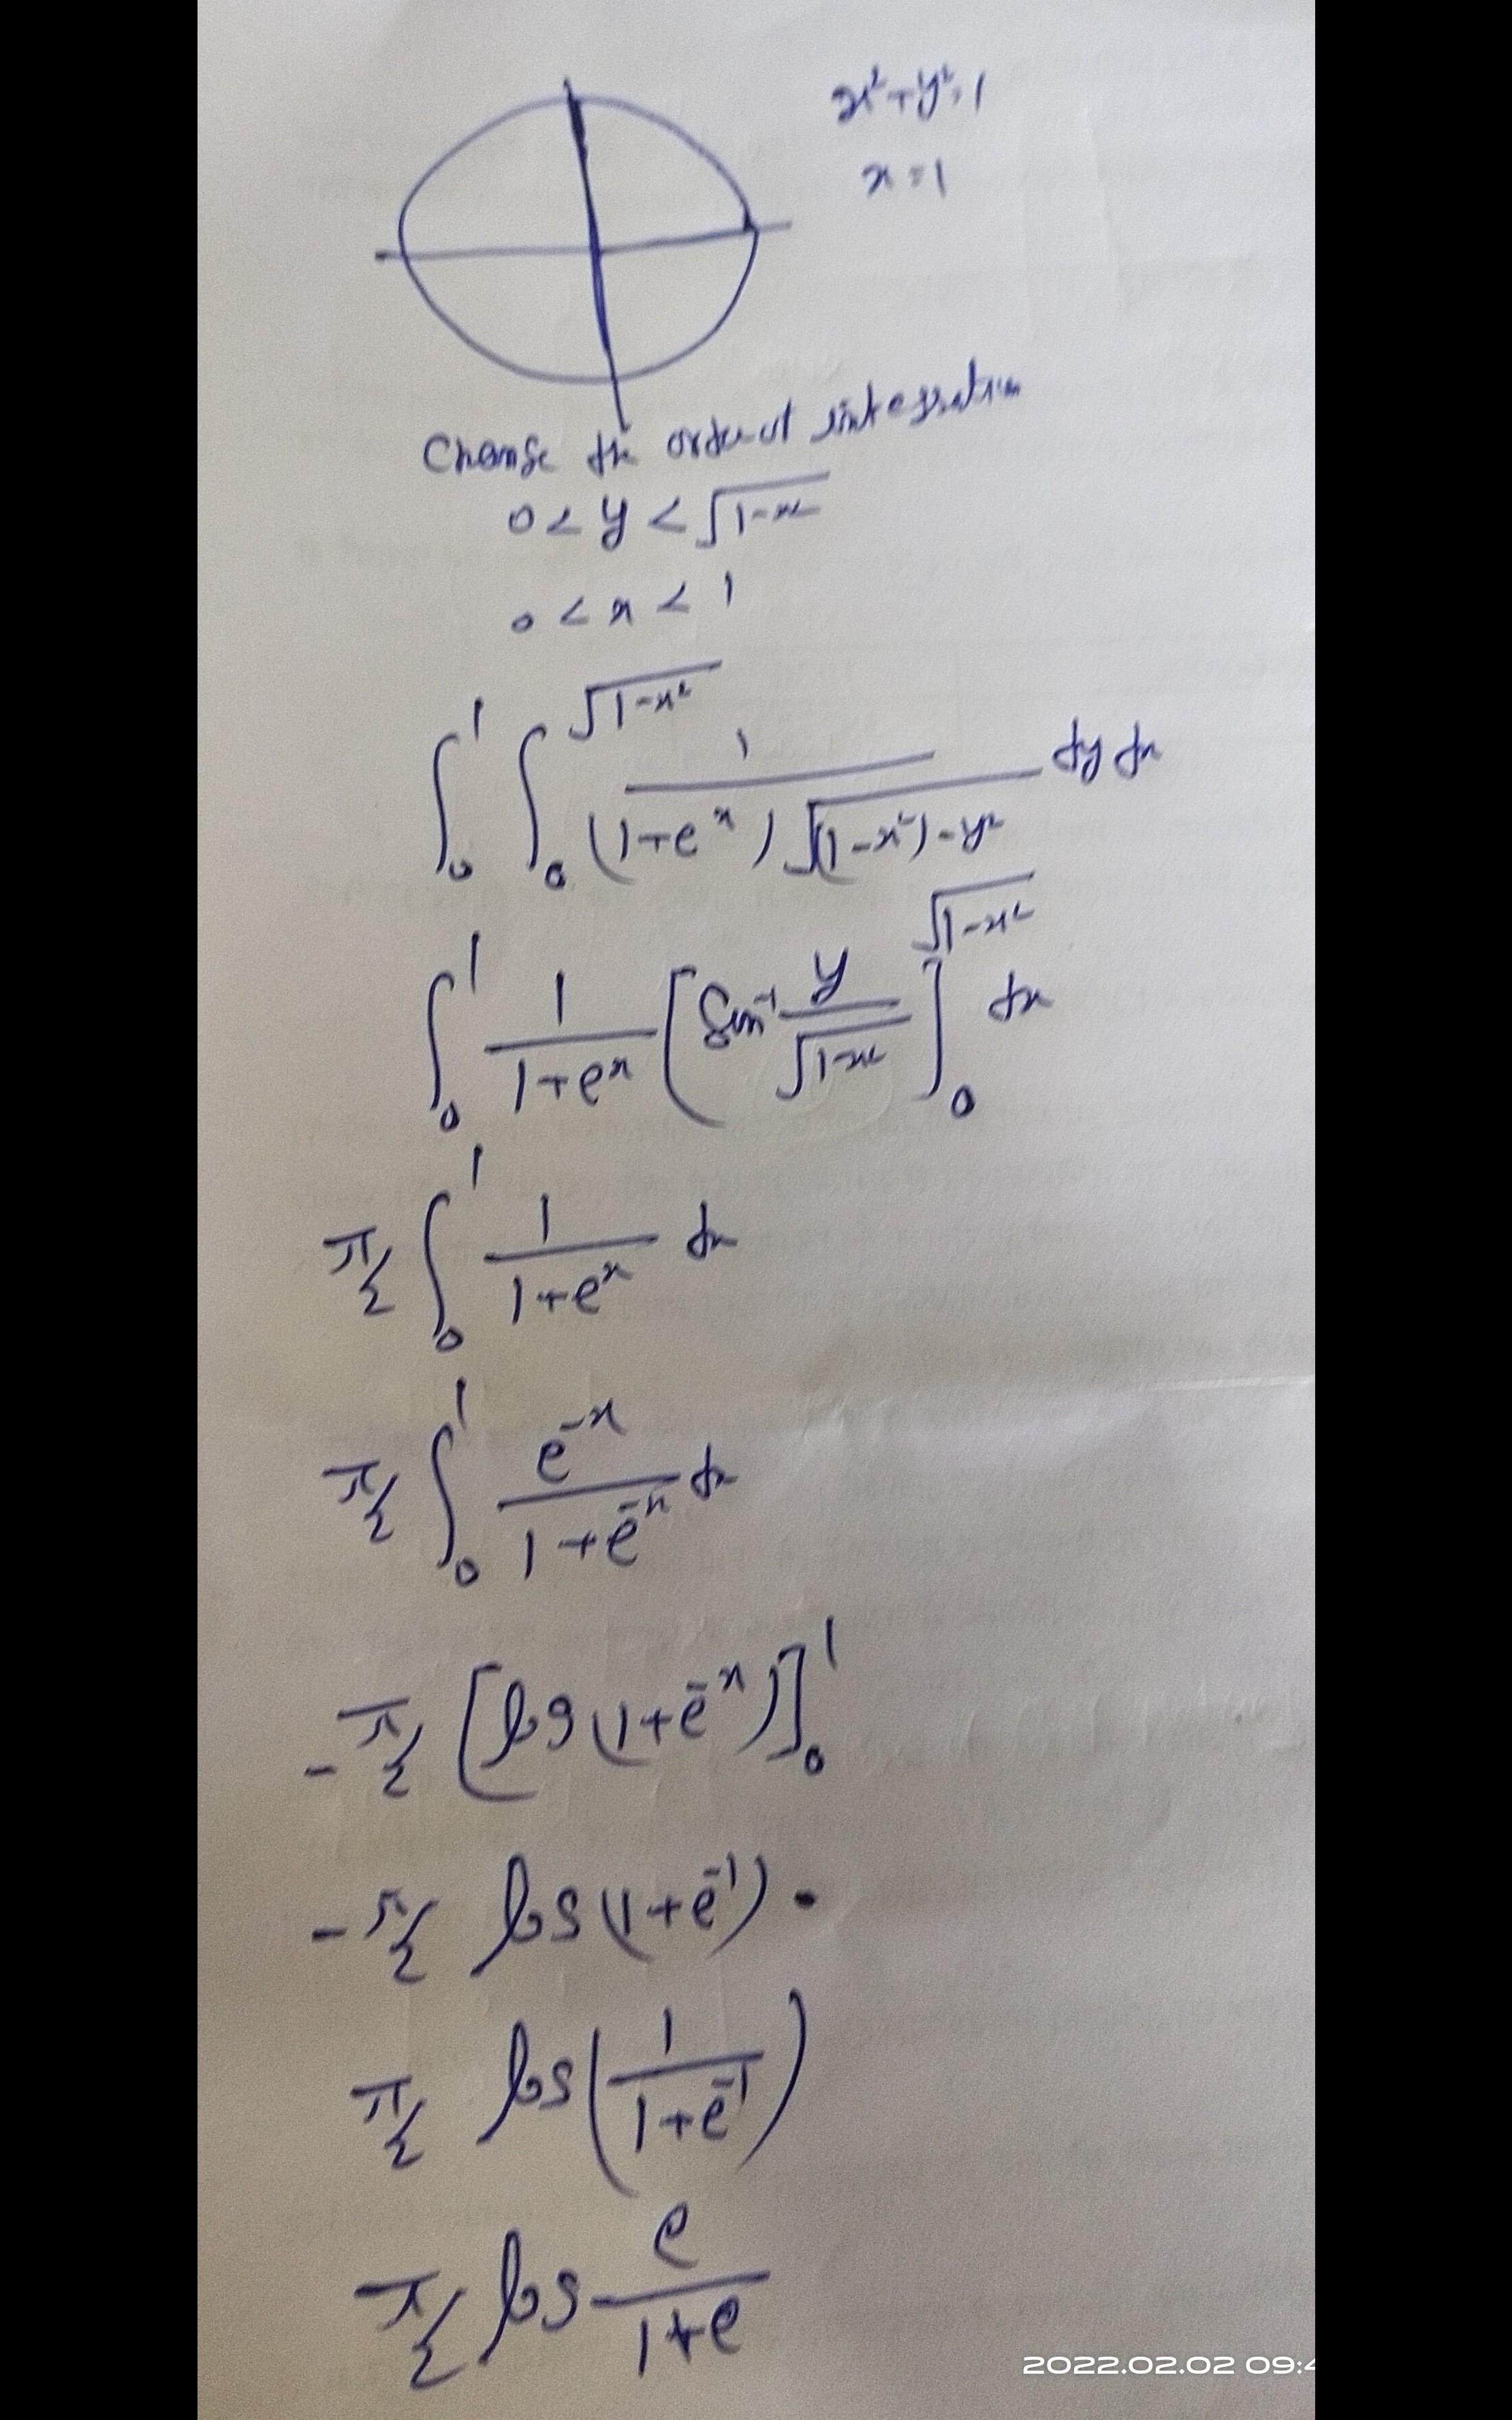 x² + y² = 1
x = 1
Change the order of integration
0 < y < √(1-x²)
0 < x < 1
∫₀¹ ∫₀^√(1-x²) 1/((1+eˣ) √((1-x²)-y²)) dy dx
∫₀¹ 1/(1+eˣ) [Sin⁻¹ y/√(1-x²)]₀^√(1-x²) dx
π/2 ∫₀¹ 1/(1+eˣ) dx
π/2 ∫₀¹ e⁻ˣ/(1+e⁻ˣ) dx
-π/2 [log (1+e⁻ˣ)]₀¹
-π/2 log (1+e⁻¹).
π/2 log (1/(1+e⁻¹))
π/2 log e/(1+e)
2022.02.02 09:4